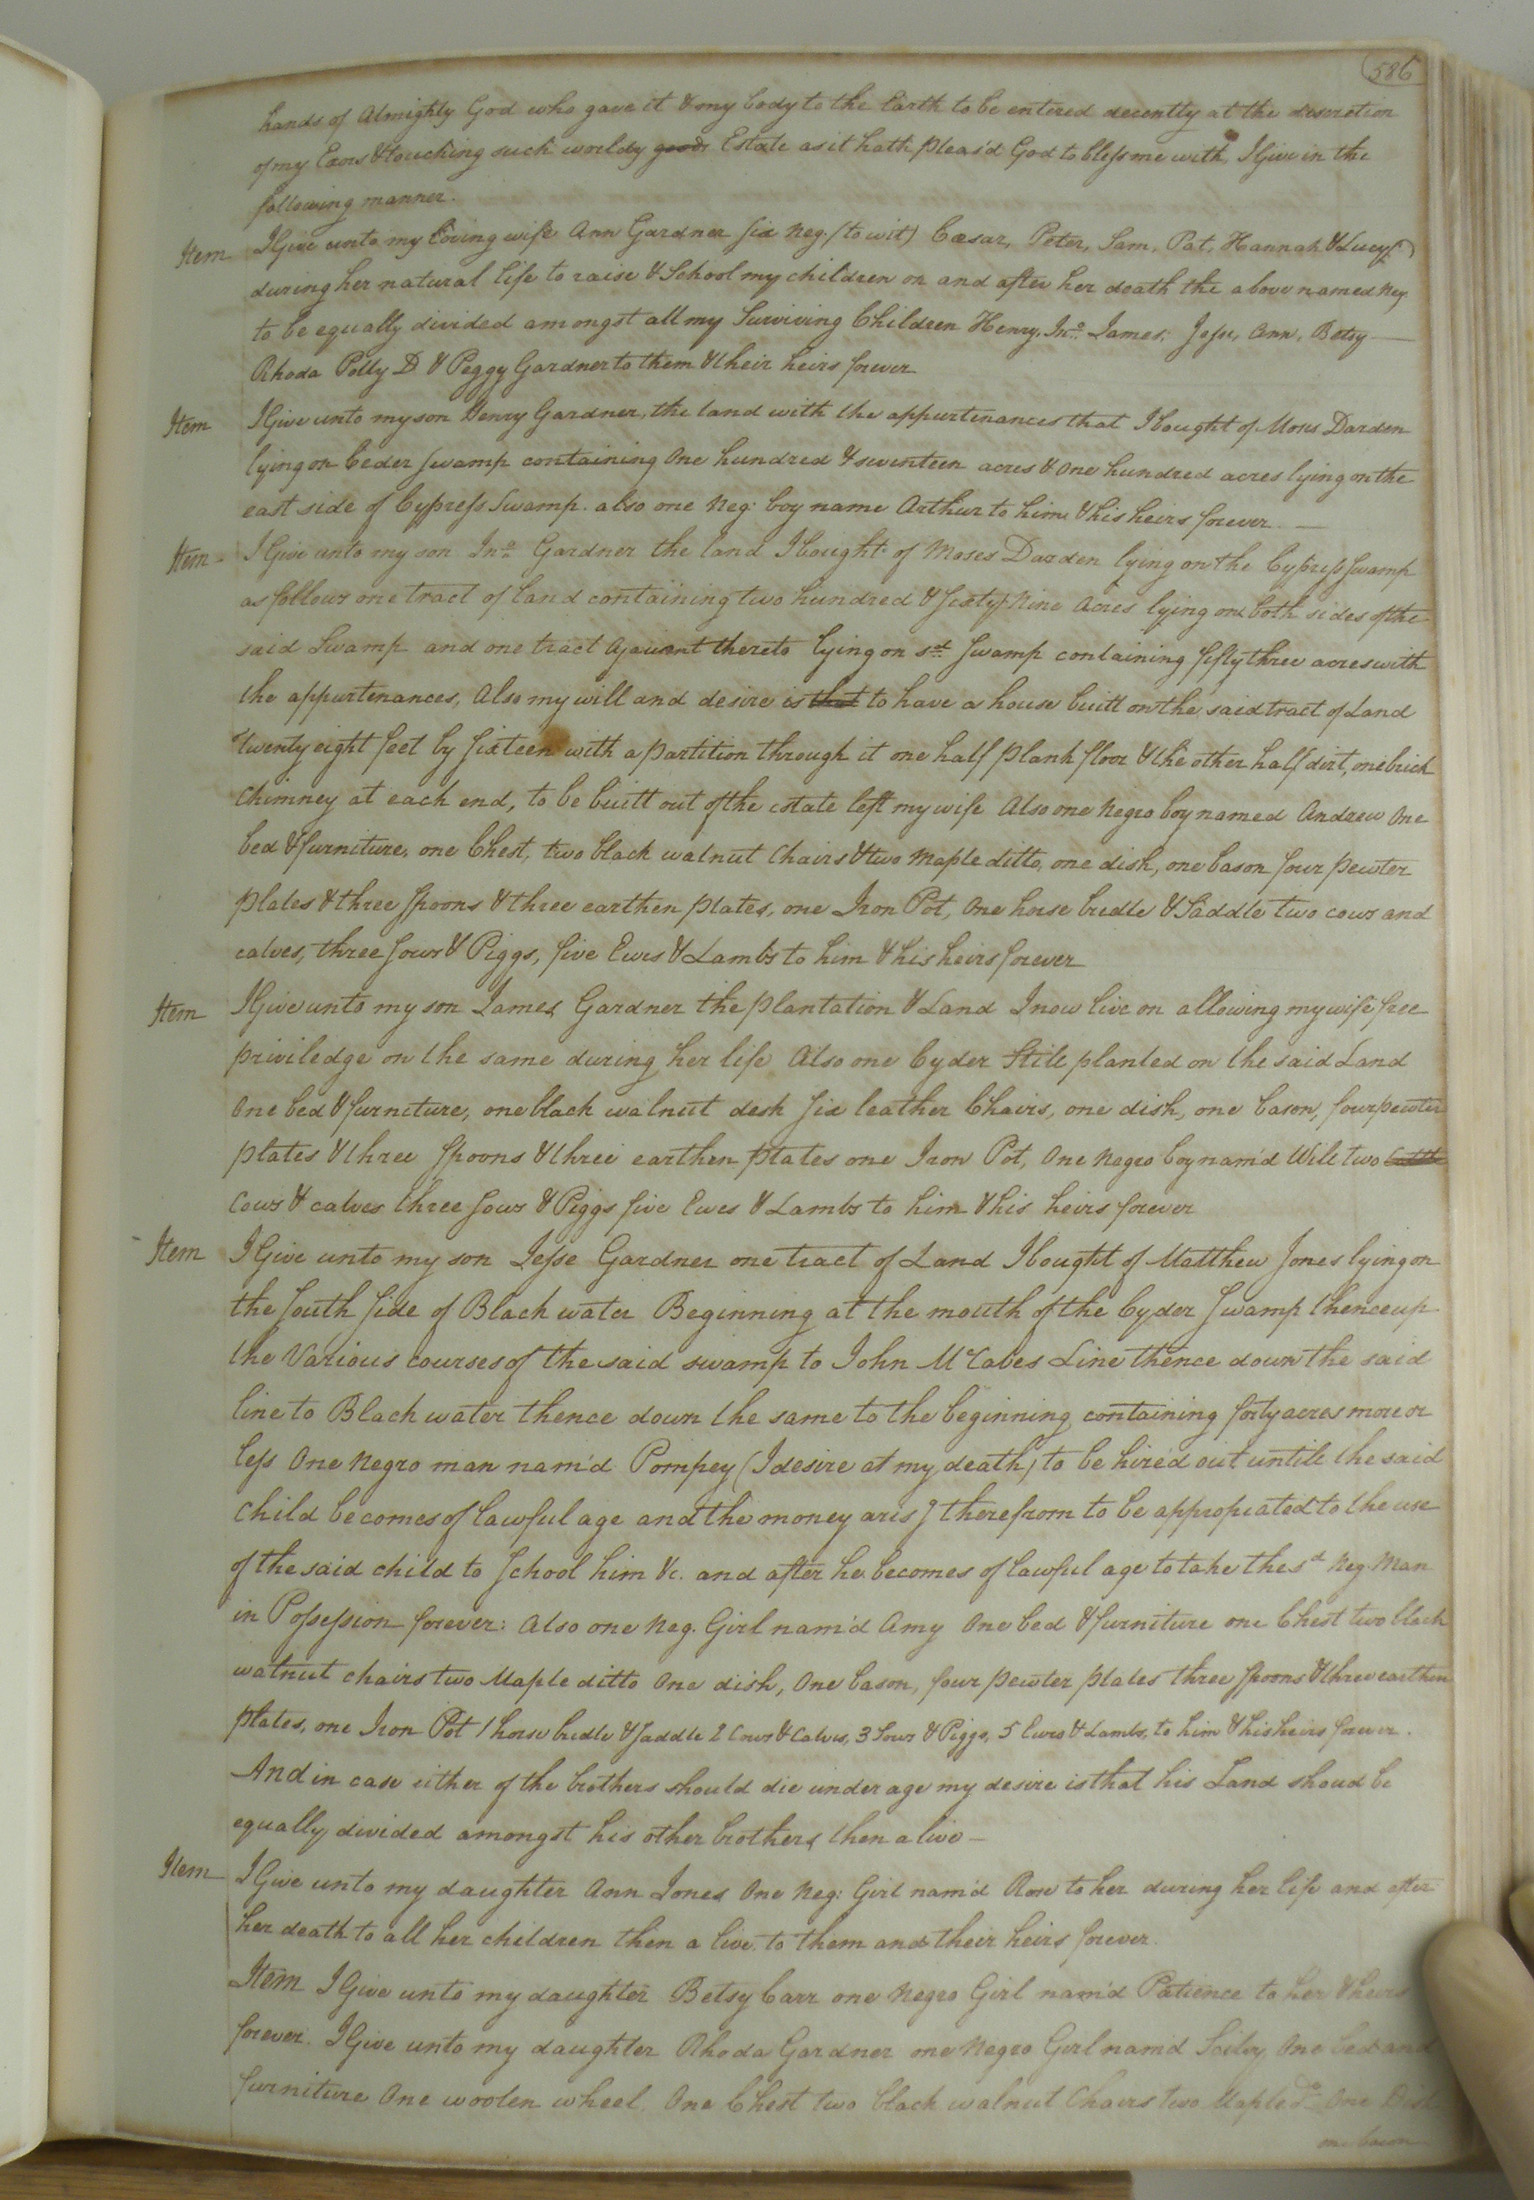 586
hands of Almighty God who gave it & my body to the Earth to be entered decently at the discretion
of my Exors & touching such worldy goods Estate as it hath pleas'd God to bless me with, I Give in the
following manner.
Item I Give unto my loving wife Ann Gardner six Neg. (to wit) Cæsar, Peter, Sam, Pat, Hannah & Lucy
during her natural life to raise & School my children on and after her death the above named Neg.
to be equally divided amongst all my Surviving Children Henry, Jno. James, Jesse, Ann, Betsy
Rhoda Polly D & Peggy Gardner to them & their heirs forever
Item I Give unto my son Henry Gardner, the land with the appurtinances that I bought of Moses Darden
lying on Ceder Swamp containing One hundred & seventeen acres & one hundred acres lying on the
east side of Cypress Swamp. also one Neg: boy name Arthur to him & his heirs forever.
Item I Give unto my son Jno. Gardner the land I bought of Moses Darden lying on the Cypress Swamp
as follows one tract of land containing two hundred & Sixty Nine Acres lying on both sides of the
said Swamp and one tract Ajacent thereto lying on sd. Swamp containing fifty three acres with
the appurtenances, Also my will and desire is that to have a house built on the said tract of Land
twenty eight feet by sixteen with a partition through it one half plank floor & the other half dirt, one brick
Chimney at each end, to be built out of the estate left my wife Also one Negro boy named Andrew One
bed & furniture, one Chest, two black walnut Chairs & two Maple ditto, one dish, one bason four pewter
plates & three spoons & three earthen plates, one Iron Pot, One horse bridle & Saddle two cows and
calves, three sows & Piggs, five Ewes & Lambs to him & his heirs forever
Item I Give unto my son James Gardner the plantation & Land I now live on allowing my wife free
priviledge on the same during her life Also one Cyder Still planted on the said Land
One bed & furniture, one black walnut desk six leather Chairs, one dish, one bason, four pewter
plates & three spoons & three earthen plates one Iron Pot, One Negro boy nam'd Will two
Cows & calves three sows & Piggs five Ewes & Lambs to him & his heirs forever
Item I Give unto my son Jesse Gardner one tract of Land I bought of Matthew Jones lying on
the South Side of Black water Beginning at the mouth of the Cyder Swamp thence up
the Various courses of the said swamp to John McCabes Line thence down the said
line to Black water thence down the same to the beginning containing forty acres more or
less One Negro man nam'd Pompey (I desire at my death) to be hired out untill the said
Child becomes of lawful age and the money arisg therefrom to be appropiated to the use
of the said child to School him &c. and after he becomes of lawful age to take the sd. Neg. Man
in Possession forever: Also one Neg. Girl nam'd Amy One bed & furniture one Chest two black
walnut chairs two Maple ditto One dish, One bason, four pewter plates three spoons & three earthen
plates, one Iron Pot 1 horse bridle & saddle 2 Cows & Calves, 3 Sows & Piggs, 5 Ewes & Lambs, to him & his heirs forever.
And in case either of the brothers should die under age my desire is that his Land shoud be
equally divided amongst his other brothers then alive
Item I Give unto my daughter Ann Jones One Neg: Girl nam'd Rose to her during her life and after
her death to all her children then a live to them and their heirs forever.
Item I Give unto my daughter Betsy Carr one Negro Girl nam'd Patience to her & heirs
forever. I Give unto my daughter Rhoda Gardner one Negro Girl nam'd One bed and
furniture One woolen wheel. One Chest two black walnut Chairs two Maple Do. One Dish
one bason